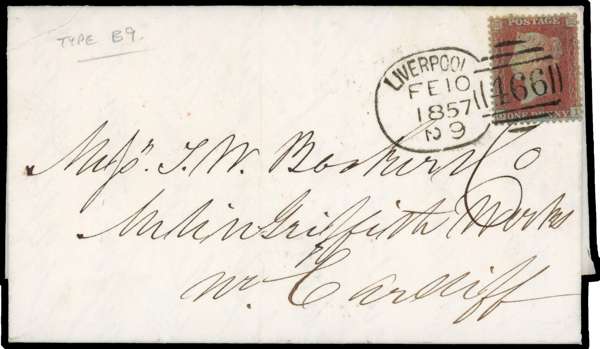 TYPE B9.
POSTAGE
LIVERPOOL
FE 10
1857
N 9
466
ONE PENNY
Messrs. T. W. Booker & Co
Melin Griffith Works
nr. Cardiff